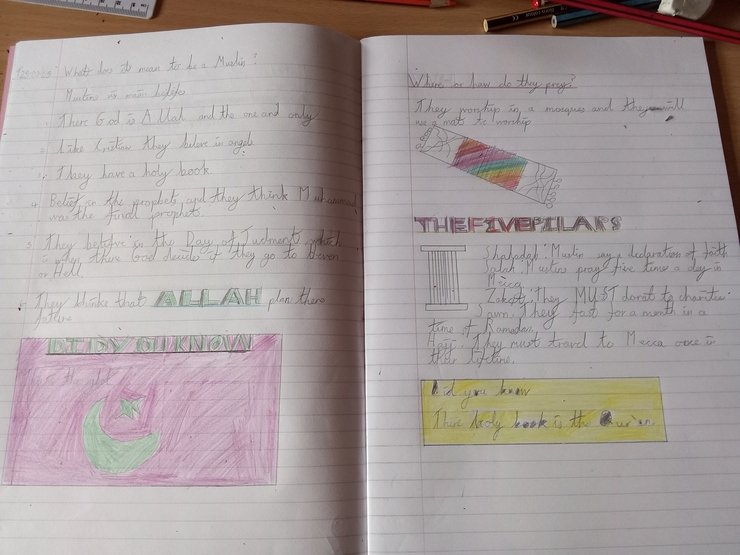 What does it mean to be a Muslim?
Muslims main beliefs
1. There God is Allah and the one and only
2. Like Cristian they beleve in angels
3. They have a holy book
4. Belief in the prophets and they think Muhammad
was the final prophet.
5. They beleive in the Day of Judment which
is when there God decide if they go to Heven
or Hell
6. They thinke that ALLAH plan there
future
DID YOU KNOW
Where or how do they pray?
They worship in a mosques and they will
use a mat to worship
THE FIVE PILARS
Shahadah: Muslim say a declaration of faith
Salah: Muslims pray five time a day in
Mecca
Zakat: They MUST donat to charities
Sawm: They fast for a month in a
time of Ramadan
Hajj: They must travel to Mecca once in
their lifetime.
Did you know
There holy book is the Qur'an